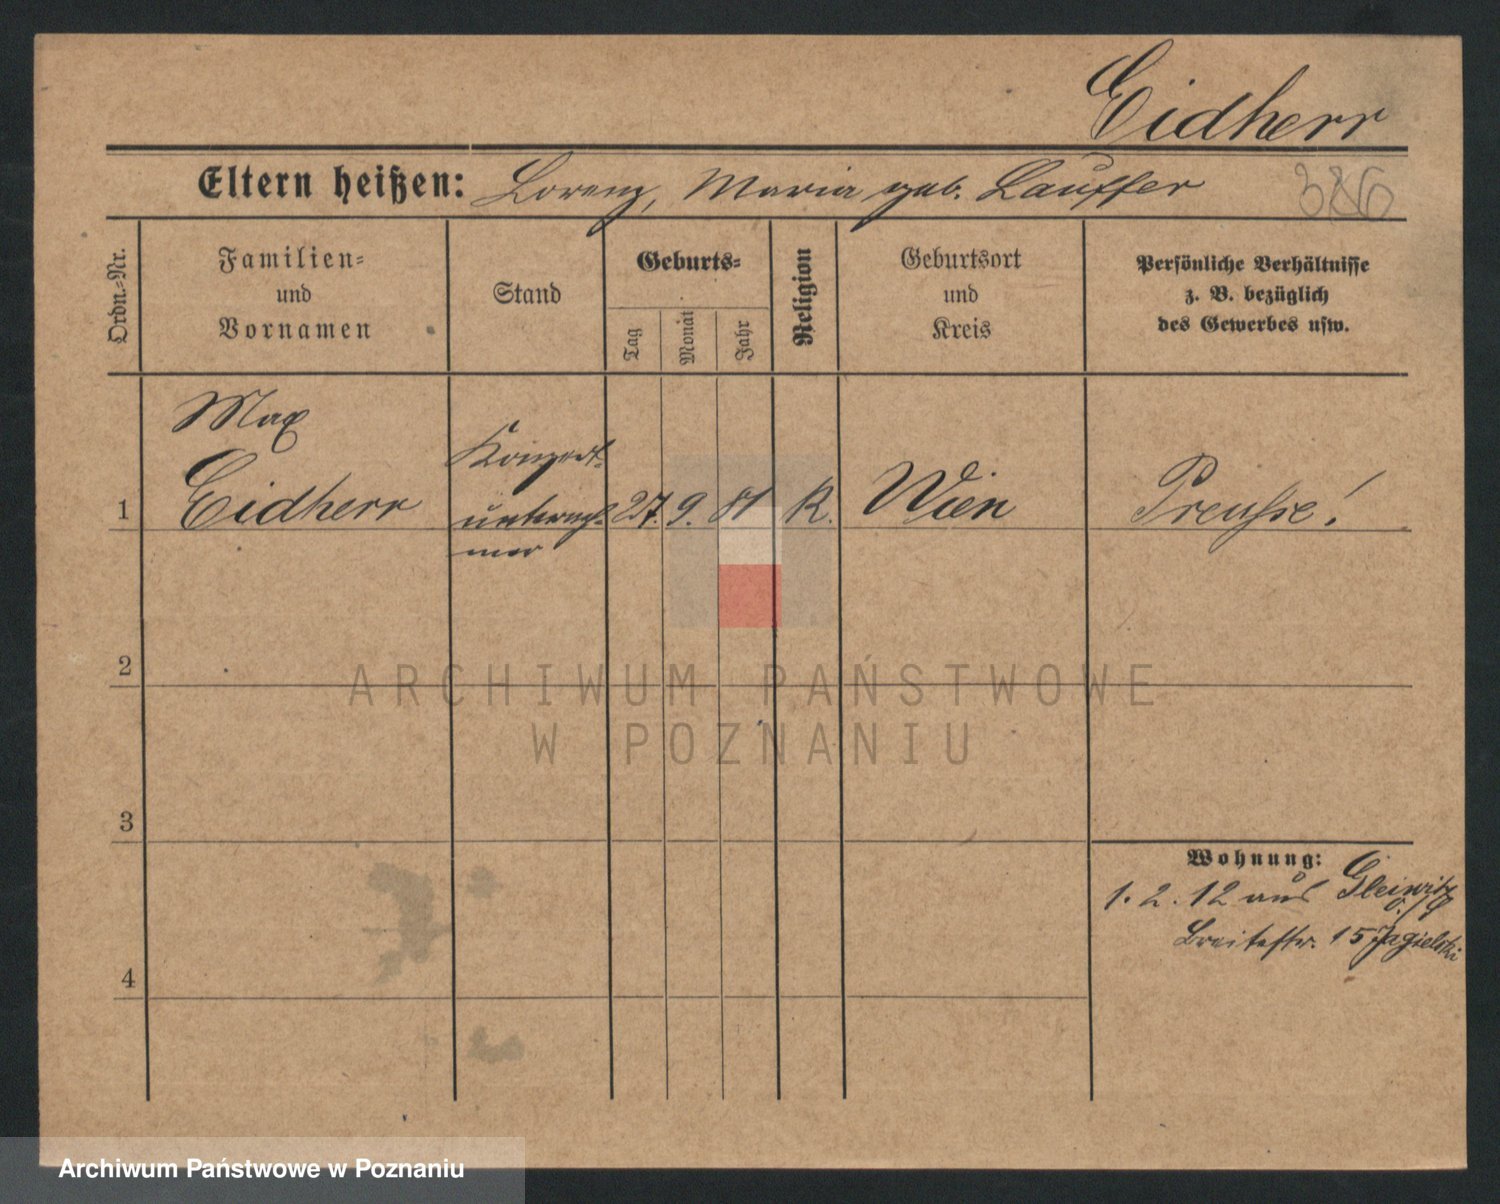 Eidherr
Eltern heißen: Lorenz, Maria geb. Lauffer
386
Ordn.-Nr.
Familien-
und
Vornamen
Stand
Geburts-
Tag
Monat
Jahr
Religion
Geburtsort
und
Kreis
Persönliche Verhältnisse
z. B. bezüglich
des Gewerbes usw.
Max
Konzert-
1 Eidherr unterneh- 27. 9. 81 K. Wien Preusse!
mer
2
ARCHIWUM PAŃSTWOWE
W POZNANIU
3
Wohnung:
1. 2. 12 aus Gleiwitz
o./S
Breitestr. 15 Jagielski
4
Archiwum Państwowe w Poznaniu